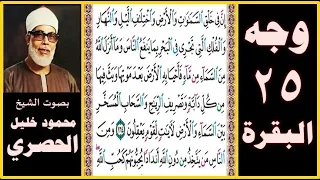 وجه
٢٥
البقرة
إِنَّ فِي خَلْقِ ٱلسَّمَٰوَٰتِ وَٱلْأَرْضِ وَٱخْتِلَٰفِ ٱلَّيْلِ وَٱلنَّهَارِ
وَٱلْفُلْكِ ٱلَّتِي تَجْرِي فِي ٱلْبَحْرِ بِمَا يَنفَعُ ٱلنَّاسَ وَمَآ أَنزَلَ ٱللَّهُ
مِنَ ٱلسَّمَآءِ مِن مَّآءٍ فَأَحْيَا بِهِ ٱلْأَرْضَ بَعْدَ مَوْتِهَا وَبَثَّ فِيهَا
مِن كُلِّ دَآبَّةٍ وَتَصْرِيفِ ٱلرِّيَٰحِ وَٱلسَّحَابِ ٱلْمُسَخَّرِ
بَيْنَ ٱلسَّمَآءِ وَٱلْأَرْضِ لَءَايَٰتٍ لِّقَوْمٍ يَعْقِلُونَ ١٦٤ وَمِنَ
ٱلنَّاسِ مَن يَتَّخِذُ مِن دُونِ ٱللَّهِ أَندَادًا يُحِبُّونَهُمْ كَحُبِّ ٱللَّهِ
بصوت الشيخ
محمود خليل
الحصري